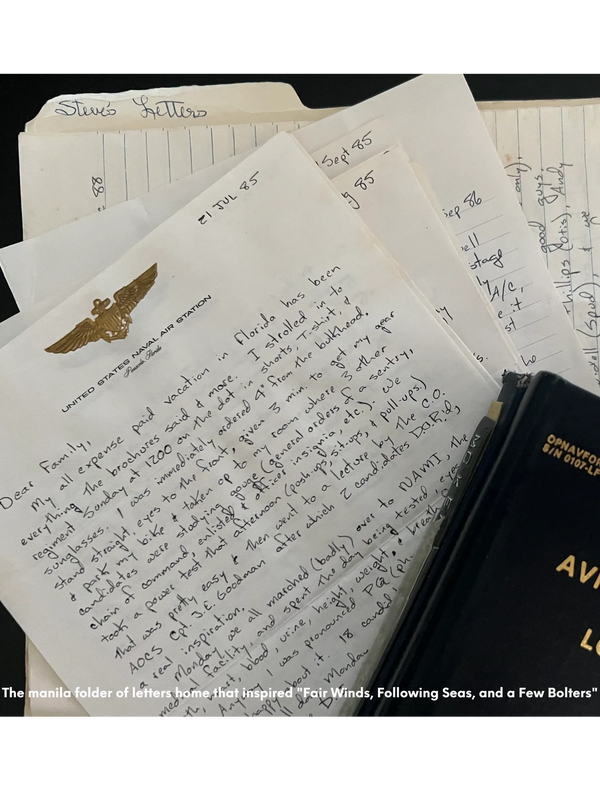 Steve's Letters
88
Sept 85
g 85
sep 86
ell
stage
ly
A/C,
e it
st
he
only),
good guys.
Phillips (Otis), Andy
well (Spud),
21 JUL 85
UNITED STATES NAVAL AIR STATION
Pensacola, Florida
Dear Family,
My all expense paid vacation in Florida has been
everything the brochures said & more. I strolled in to
regiment Sunday at 1200 on the dot in shorts, T-shirt, &
sunglasses. I was immediately ordered 4" from the bulkhead.
stand straight eyes to the front, given 3 min. to get my gear
& park my bike & taken up to my room where 3 other
candidates were studying gouge (general orders of a sentry,
chain of command, enlisted & officer insignia, etc.). We
took a power test that afternoon (pushups, sit-ups, & pull-ups)
that was pretty easy & then went to a lecture by the C.O.
AOCS Cpt. J.E. Goodman after which 2 candidates D.O.R.'d,
a real inspiration.
Monday we all marched (badly) over to NAMI, the
med facility, and spent the day being tested, eyes,
blood, urine, height, weight, & breath
Anyway I was pronounced PQ (ph
happy about it. 18 candid
Monday
OPNAVFO
S/N 0107-LF
AVI
LO
The manila folder of letters home that inspired "Fair Winds, Following Seas, and a Few Bolters"